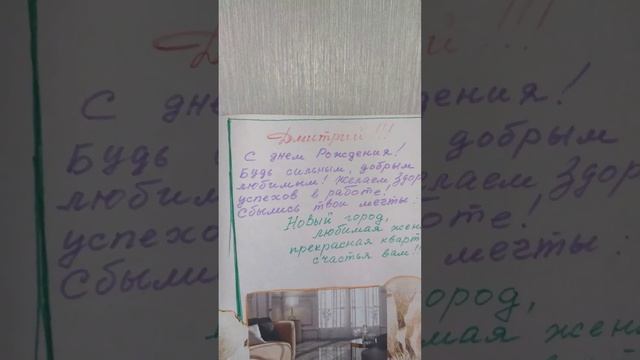 Дмитрий!!!
С днем Рождения!
Будь сильным, добрым
любимым! Желаем Здор
успехов в работе!
Сбылись твои мечты:
Новый город,
любимая жен
прекрасная кварт
счастья вам!!